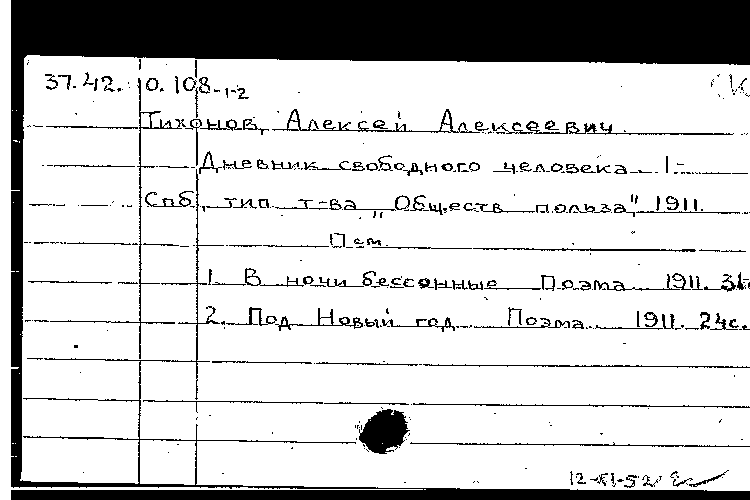 37.42. 10.108-1-2
Тихонов, Алексей Алексеевич.
Дневник свободного человека. 1-
Спб, тип т-ва „Обществ польза", 1911.
1. В ночи бессонные Поэма 1911.
2. Под Новый год. Поэма. 1911. 24с.
12-XI-52